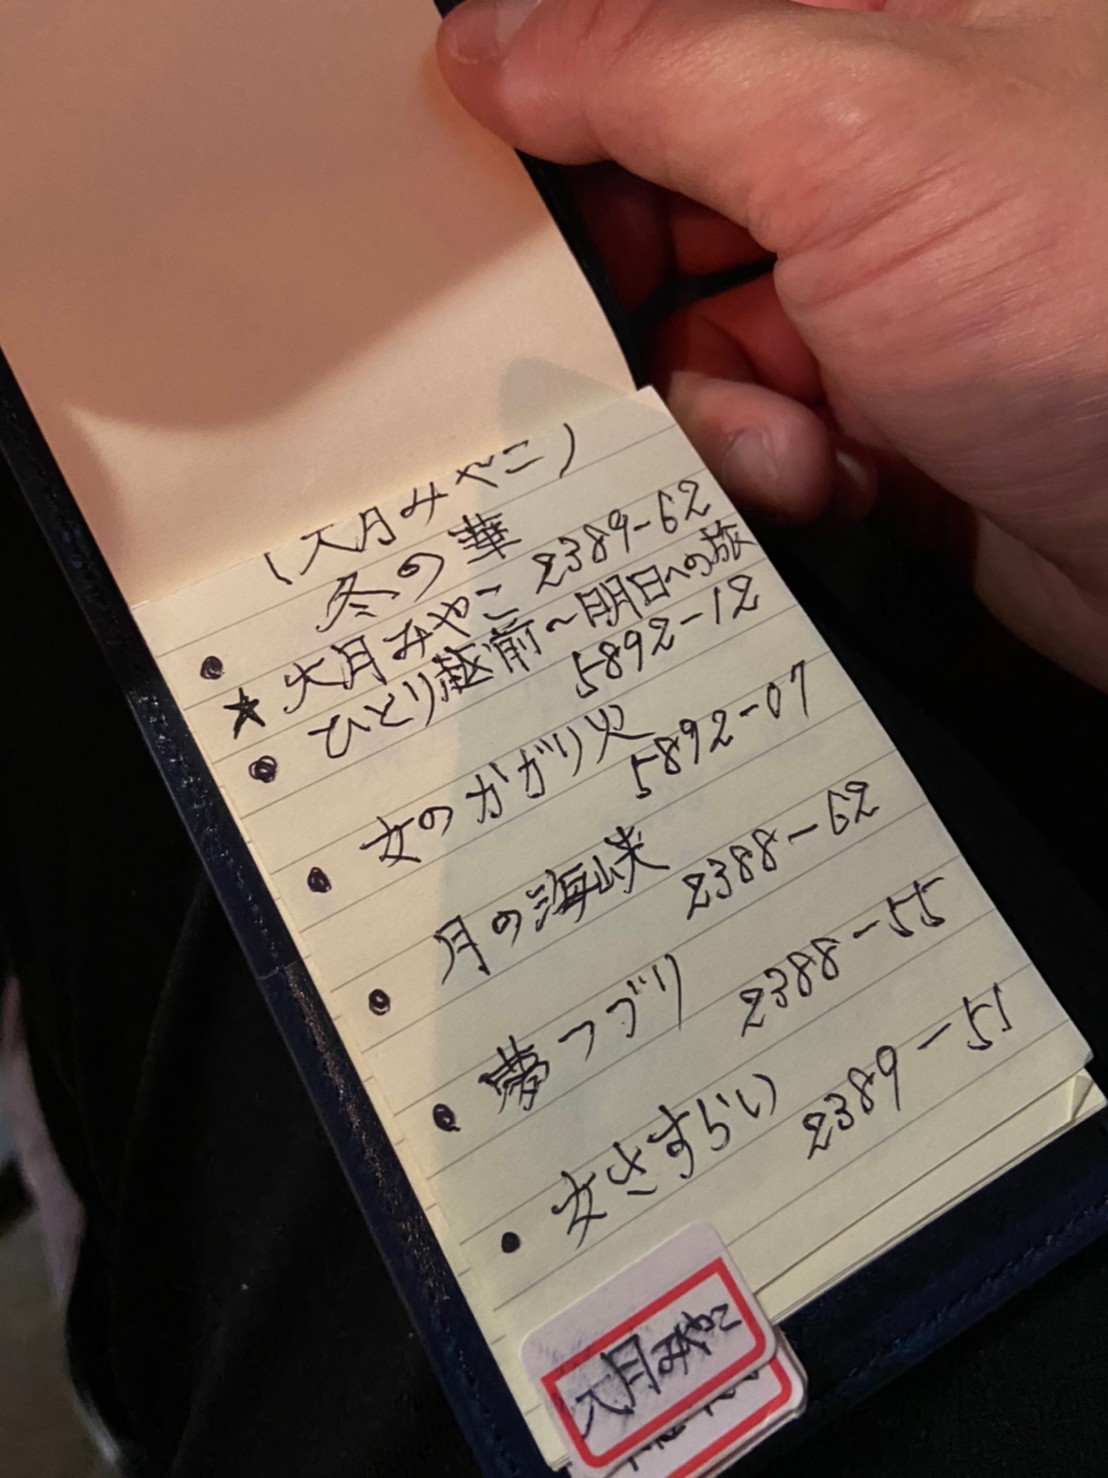 (大月みやこ)
冬の華
● 2389-62
★ 大月みやこ
● ひとり越前〜明日への旅
5892-12
● 女のかがり火
5892-07
● 月の海峡 2388-62
● 夢つづり 2388-55
● 女さすらい 2389-51
大月みやこ